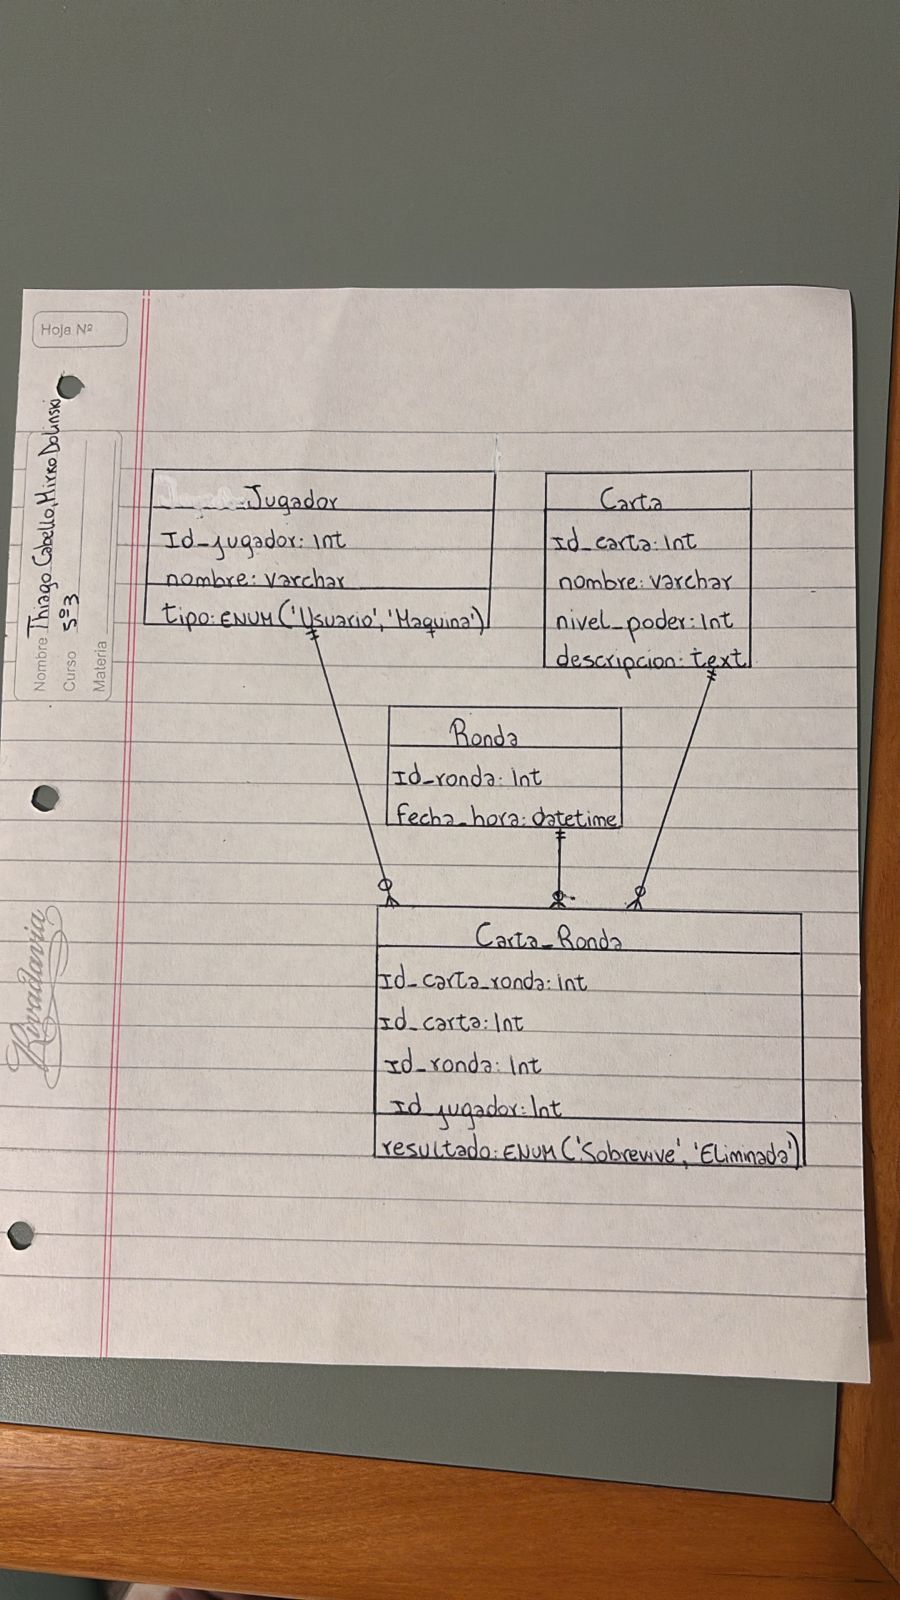 Hoja Nº
Nombre Thiago Cabello, Mirko Dolinski
Curso 5º3
Materia
Rivadavia
Jugador
Id_jugador: Int
nombre: varchar
tipo: ENUM('Usuario', 'Maquina')
Carta
Id_carta: Int
nombre: varchar
nivel_poder: Int
descripcion: text
Ronda
Id_ronda: Int
fecha_hora: datetime
Carta_Ronda
Id_carta_ronda: int
Id_carta: Int
Id_ronda: Int
Id_jugador: Int
resultado: ENUM('Sobrevive', 'Eliminada')